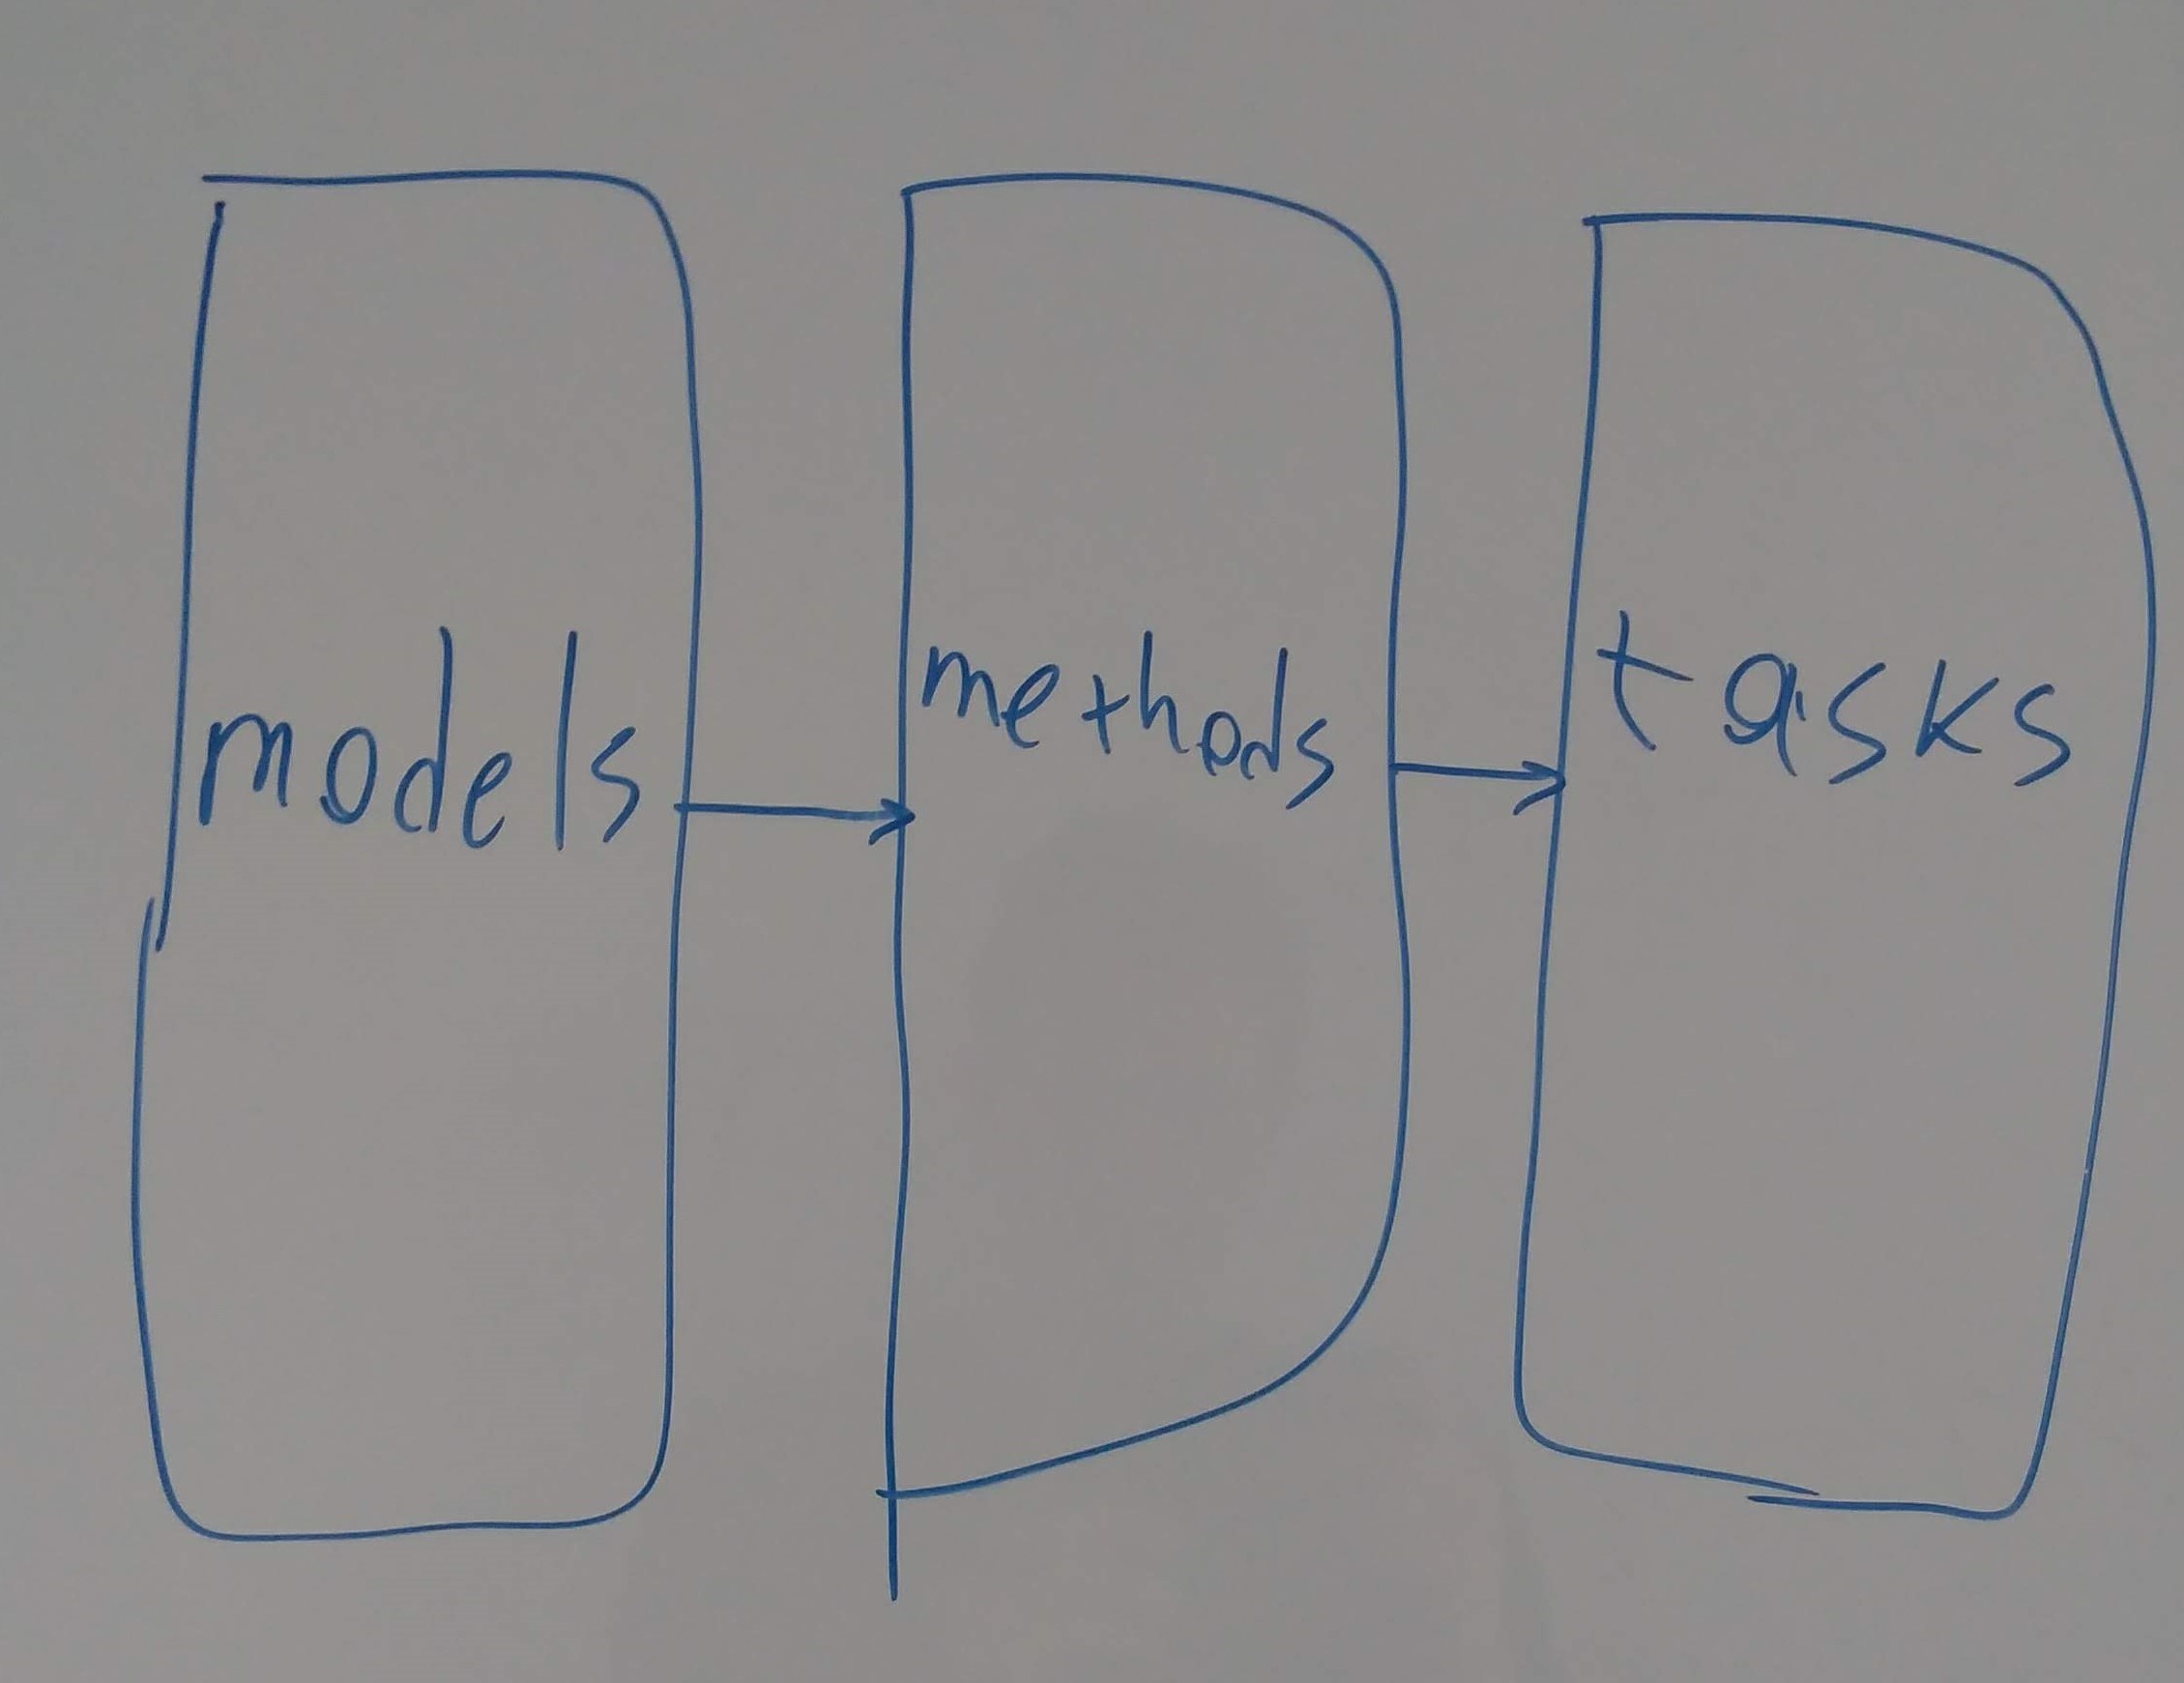 models
methods
tasks